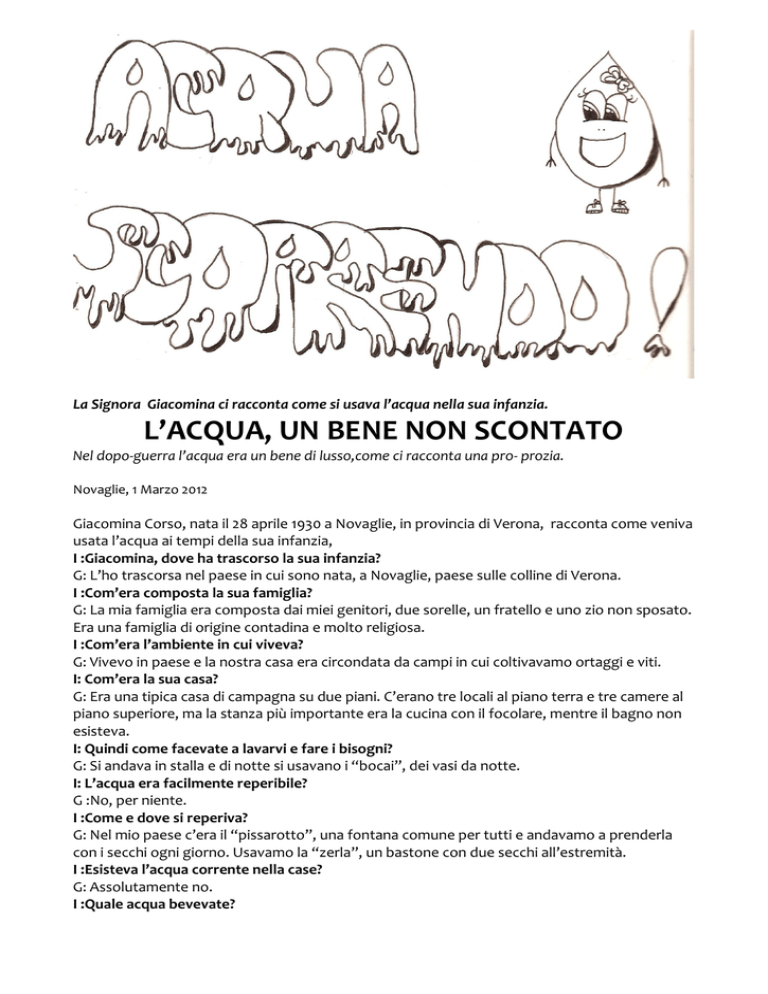 ACQUA
SCORRENDO!
La Signora  Giacomina ci racconta come si usava l’acqua nella sua infanzia.
L’ACQUA, UN BENE NON SCONTATO
Nel dopo-guerra l’acqua era un bene di lusso,come ci racconta una pro- prozia.
Novaglie, 1 Marzo 2012
Giacomina Corso, nata il 28 aprile 1930 a Novaglie, in provincia di Verona,  racconta come veniva
usata l’acqua ai tempi della sua infanzia,
I :Giacomina, dove ha trascorso la sua infanzia?
G: L’ho trascorsa nel paese in cui sono nata, a Novaglie, paese sulle colline di Verona.
I :Com’era composta la sua famiglia?
G: La mia famiglia era composta dai miei genitori, due sorelle, un fratello e uno zio non sposato.
Era una famiglia di origine contadina e molto religiosa.
I :Com’era l’ambiente in cui viveva?
G: Vivevo in paese e la nostra casa era circondata da campi in cui coltivavamo ortaggi e viti.
I: Com’era la sua casa?
G: Era una tipica casa di campagna su due piani. C’erano tre locali al piano terra e tre camere al
piano superiore, ma la stanza più importante era la cucina con il focolare, mentre il bagno non
esisteva.
I: Quindi come facevate a lavarvi e fare i bisogni?
G: Si andava in stalla e di notte si usavano i “bocai”, dei vasi da notte.
I: L’acqua era facilmente reperibile?
G :No, per niente.
I :Come e dove si reperiva?
G: Nel mio paese c’era il “pissarotto”, una fontana comune per tutti e andavamo a prenderla
con i secchi ogni giorno. Usavamo la “zerla”, un bastone con due secchi all’estremità.
I :Esisteva l’acqua corrente nella case?
G: Assolutamente no.
I :Quale acqua bevevate?